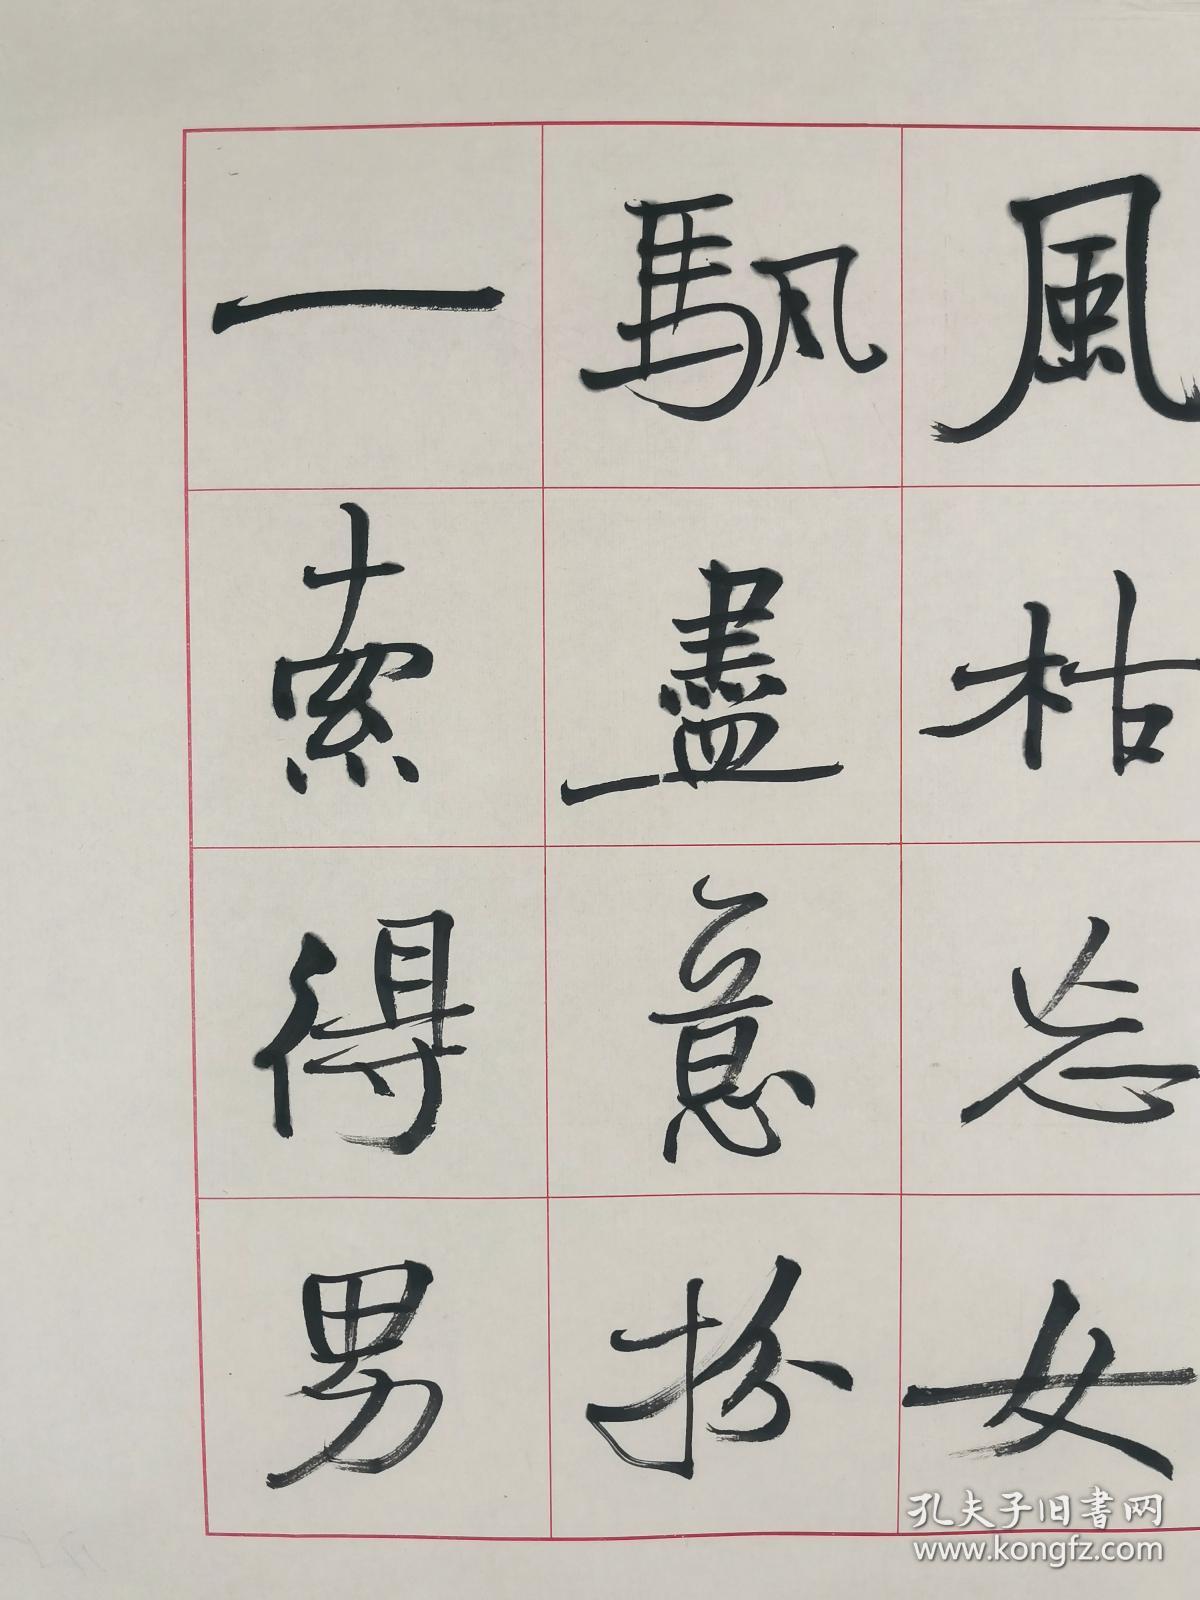 一䭵風
索盡枯
得意忘
男扮女
孔夫子旧書网
www.kongfz.com